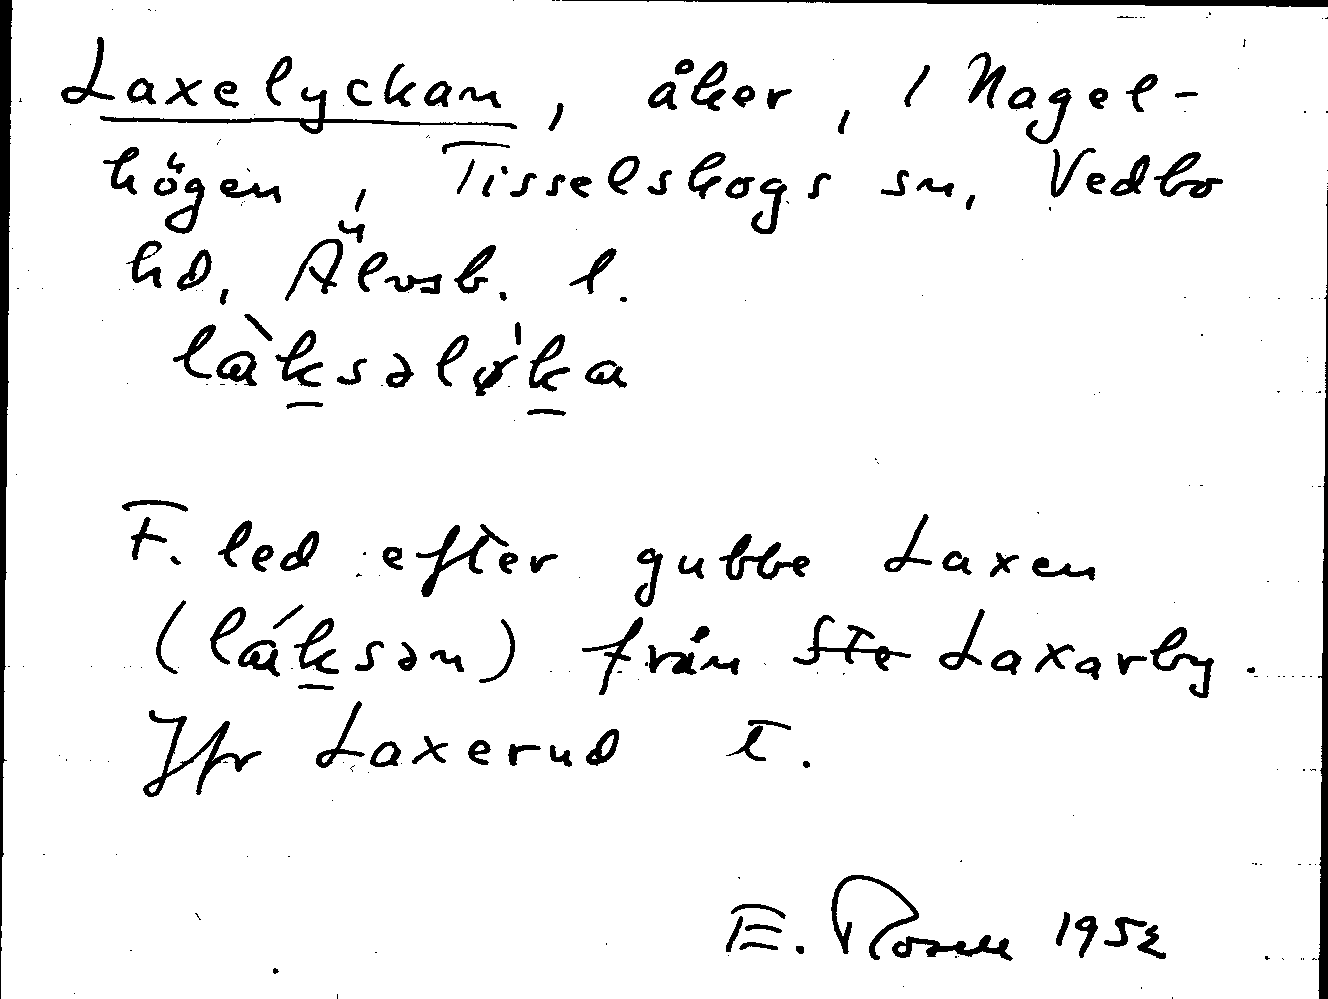 Laxelyckan, åker, 1 Nagel-
högen, Tisselskogs sn, Vedbo
hd, Älvsb. l.
làksəlø̀ka
F. led efter gubbe Laxen
(láksən) från Ste Laxarby.
Jfr Laxerud t.
E. Rosell 1952